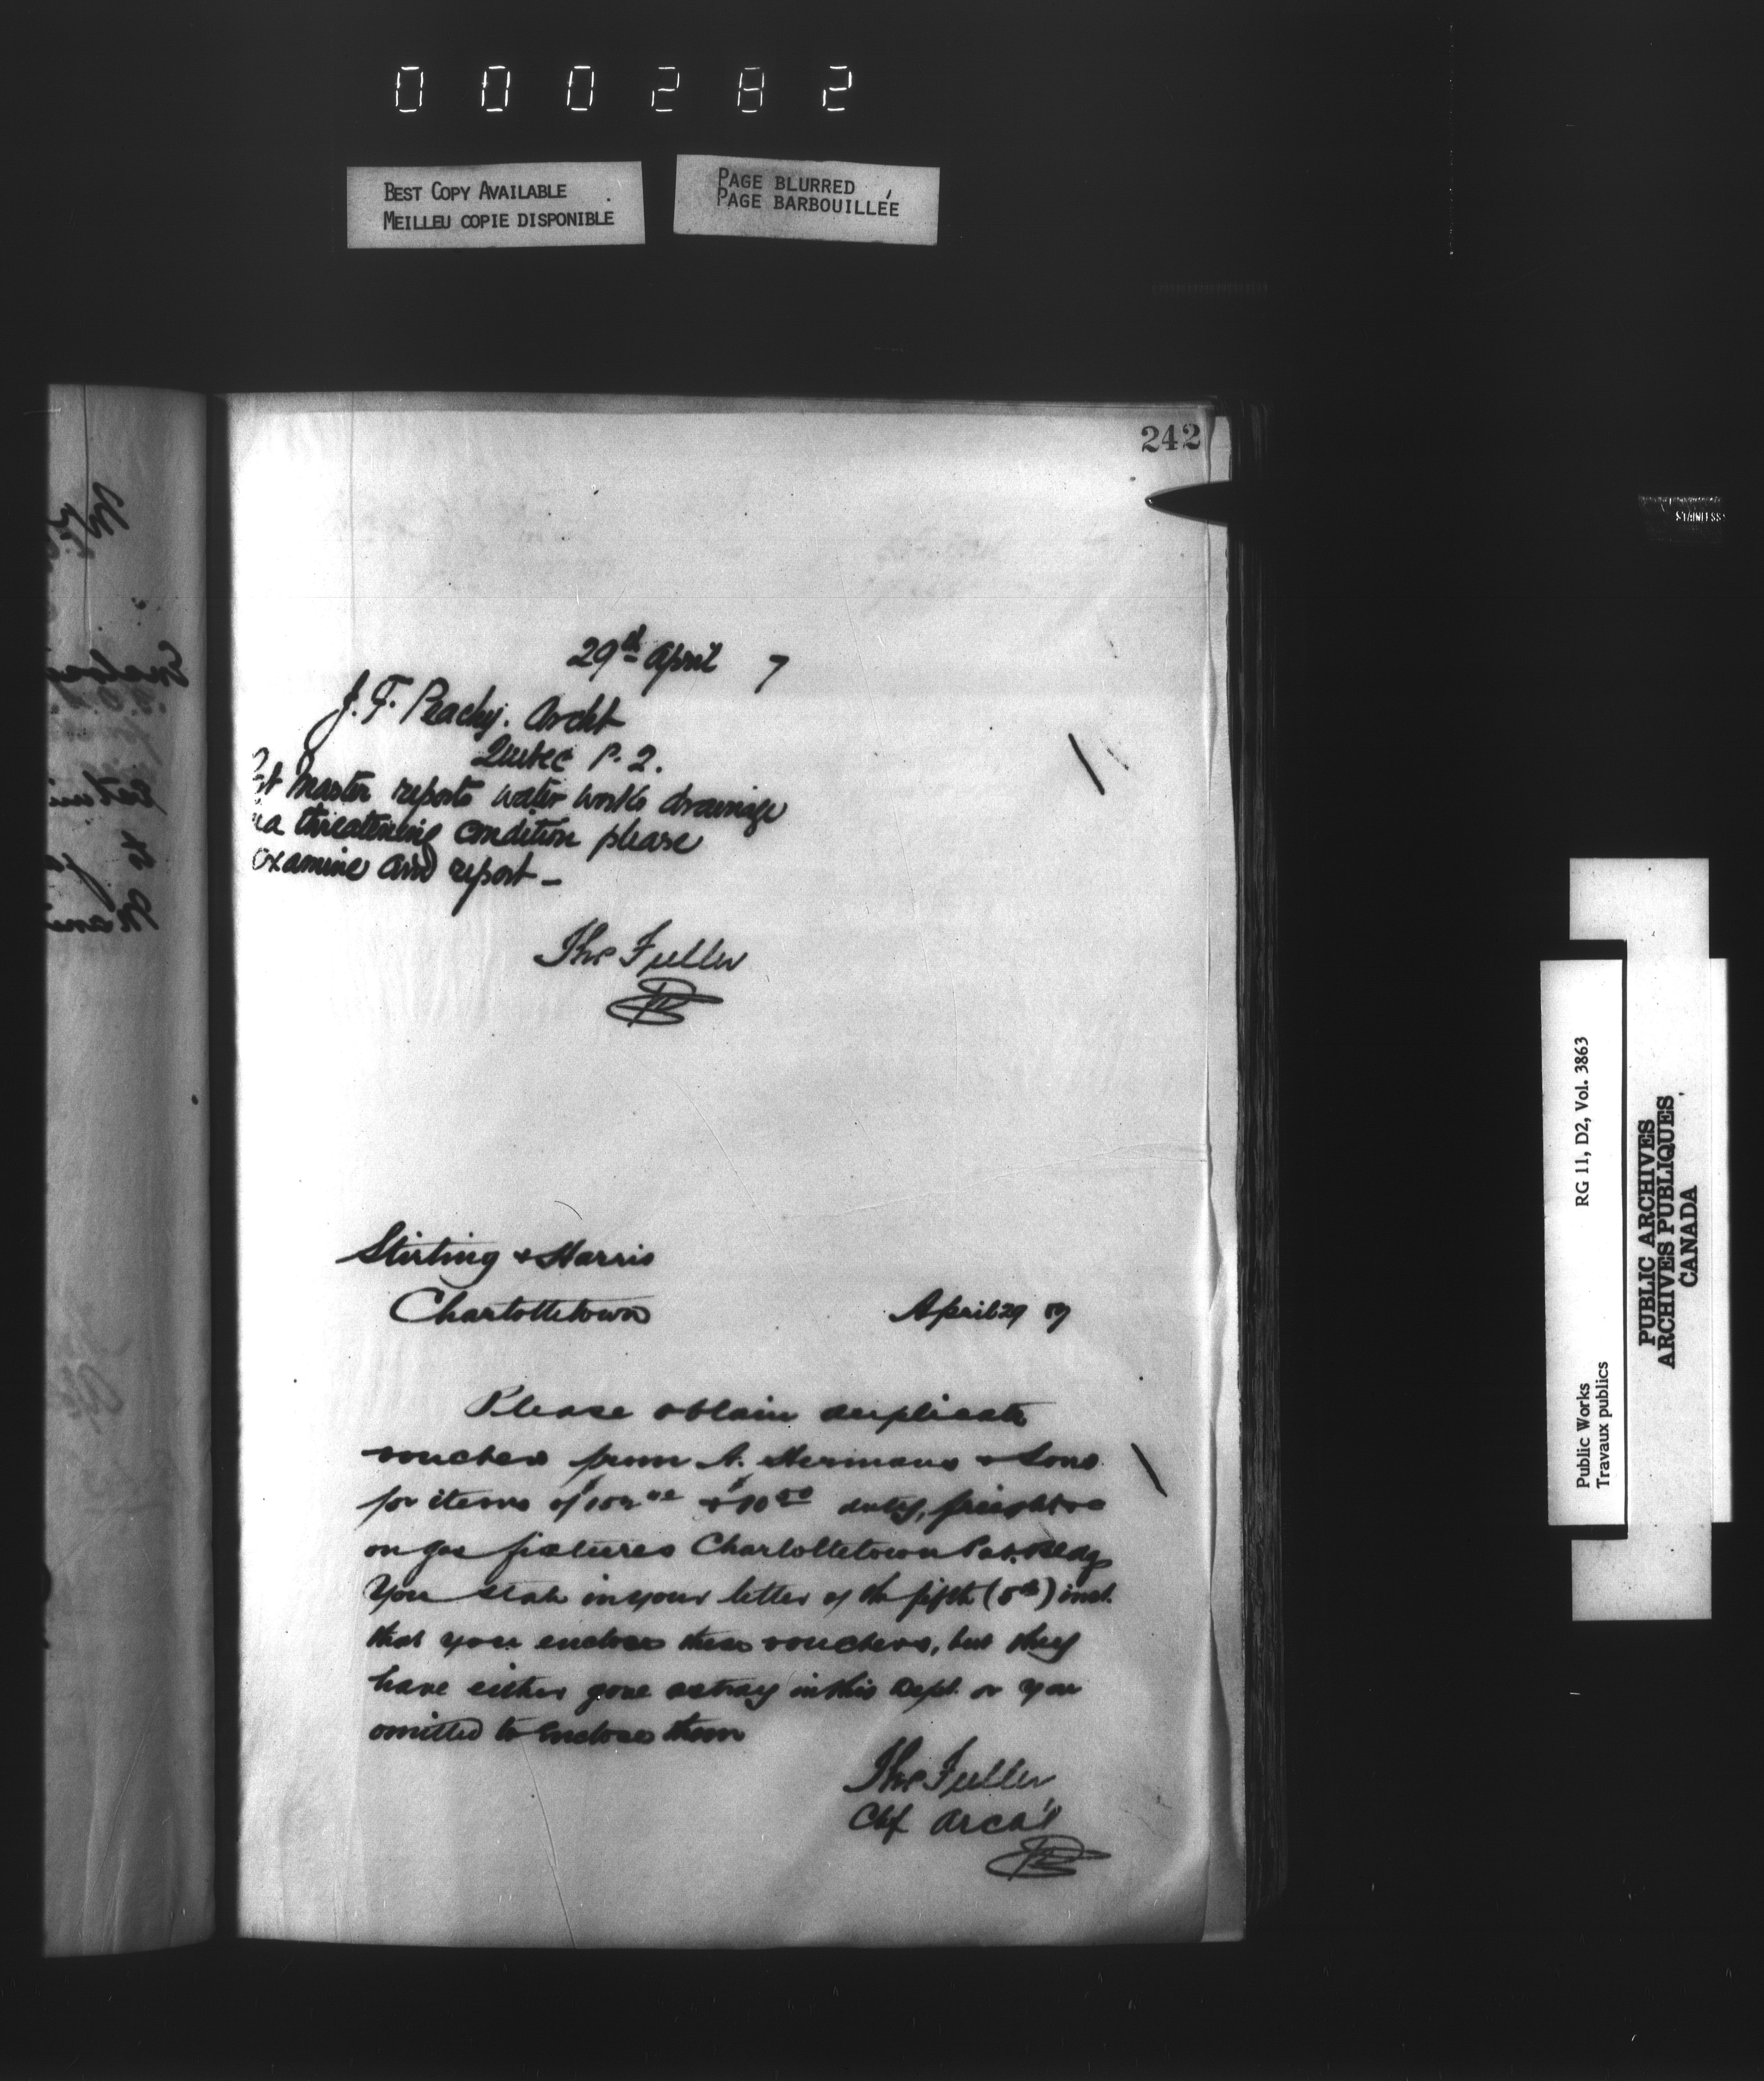 000282
BEST COPY AVAILABLE
MEILLEU COPIE DISPONIBLE
PAGE BLURRED
PAGE BARBOUILLÉE
242
29th April 7
J. F. Peachy. Archt
Quebec P. Q.
Post Master reports water works drainage
in a threatening condition please
examine and report —
Thos Fuller
Stirling & Harris
Charlottetown April 29 87
Please obtain duplicate
vouchers from A. Hermans & Sons
for items of & duty, freight &c
on gas fixtures Charlottetown Pub. Bldg
You state in your letter of the fifth (5th) inst.
that you enclose these vouchers, but they
have either gone astray in this Dept. or you
omitted to enclose them
Thos Fuller
Chf Arch't
Public Works RG 11, D2, Vol. 3863
Travaux publics
PUBLIC ARCHIVES
ARCHIVES PUBLIQUES
CANADA
STAINLESS